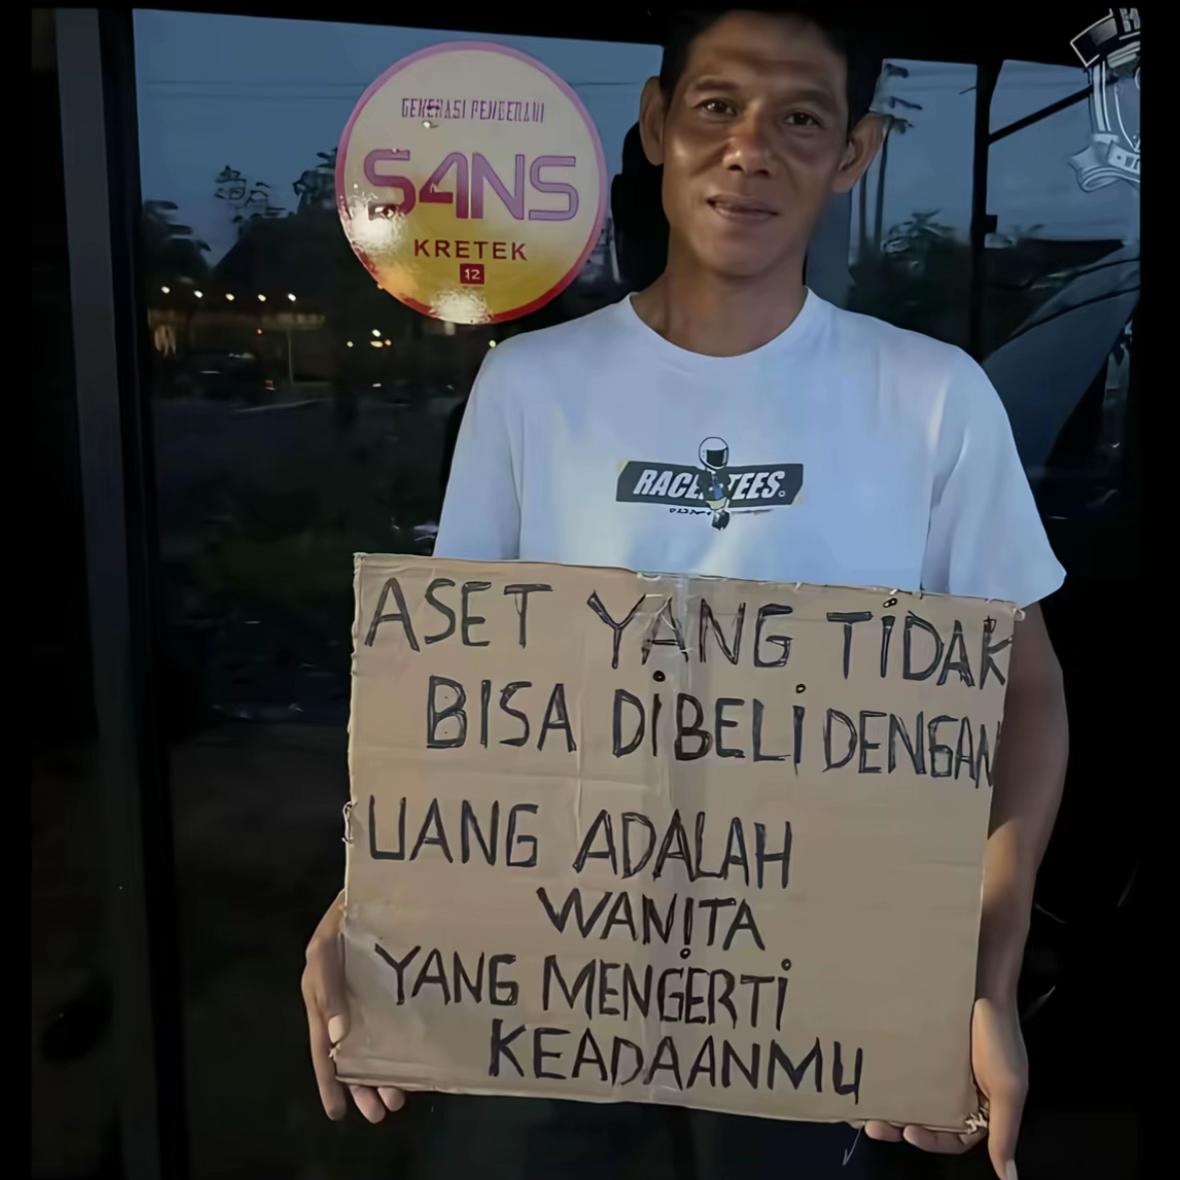 GENERASI PEMBERANI
S4NS
KRETEK
12
RACE TEES.
ASET YANG TIDAK
BISA DIBELI DENGAN
UANG ADALAH
WANITA
YANG MENGERTI
KEADAANMU